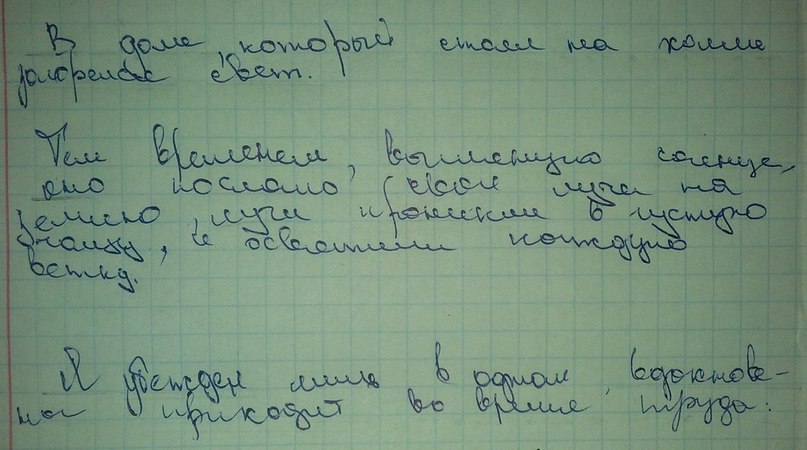 В доме, который стоял на холме
загорелся свет.
Тем временем, выглянуло солнце,
оно послало свои лучи на
землю, лучи проникли в густую
чащу, и осветили каждую
ветку.
Я убежден лишь в одном, вдохнове-
ние приходит во время труда.